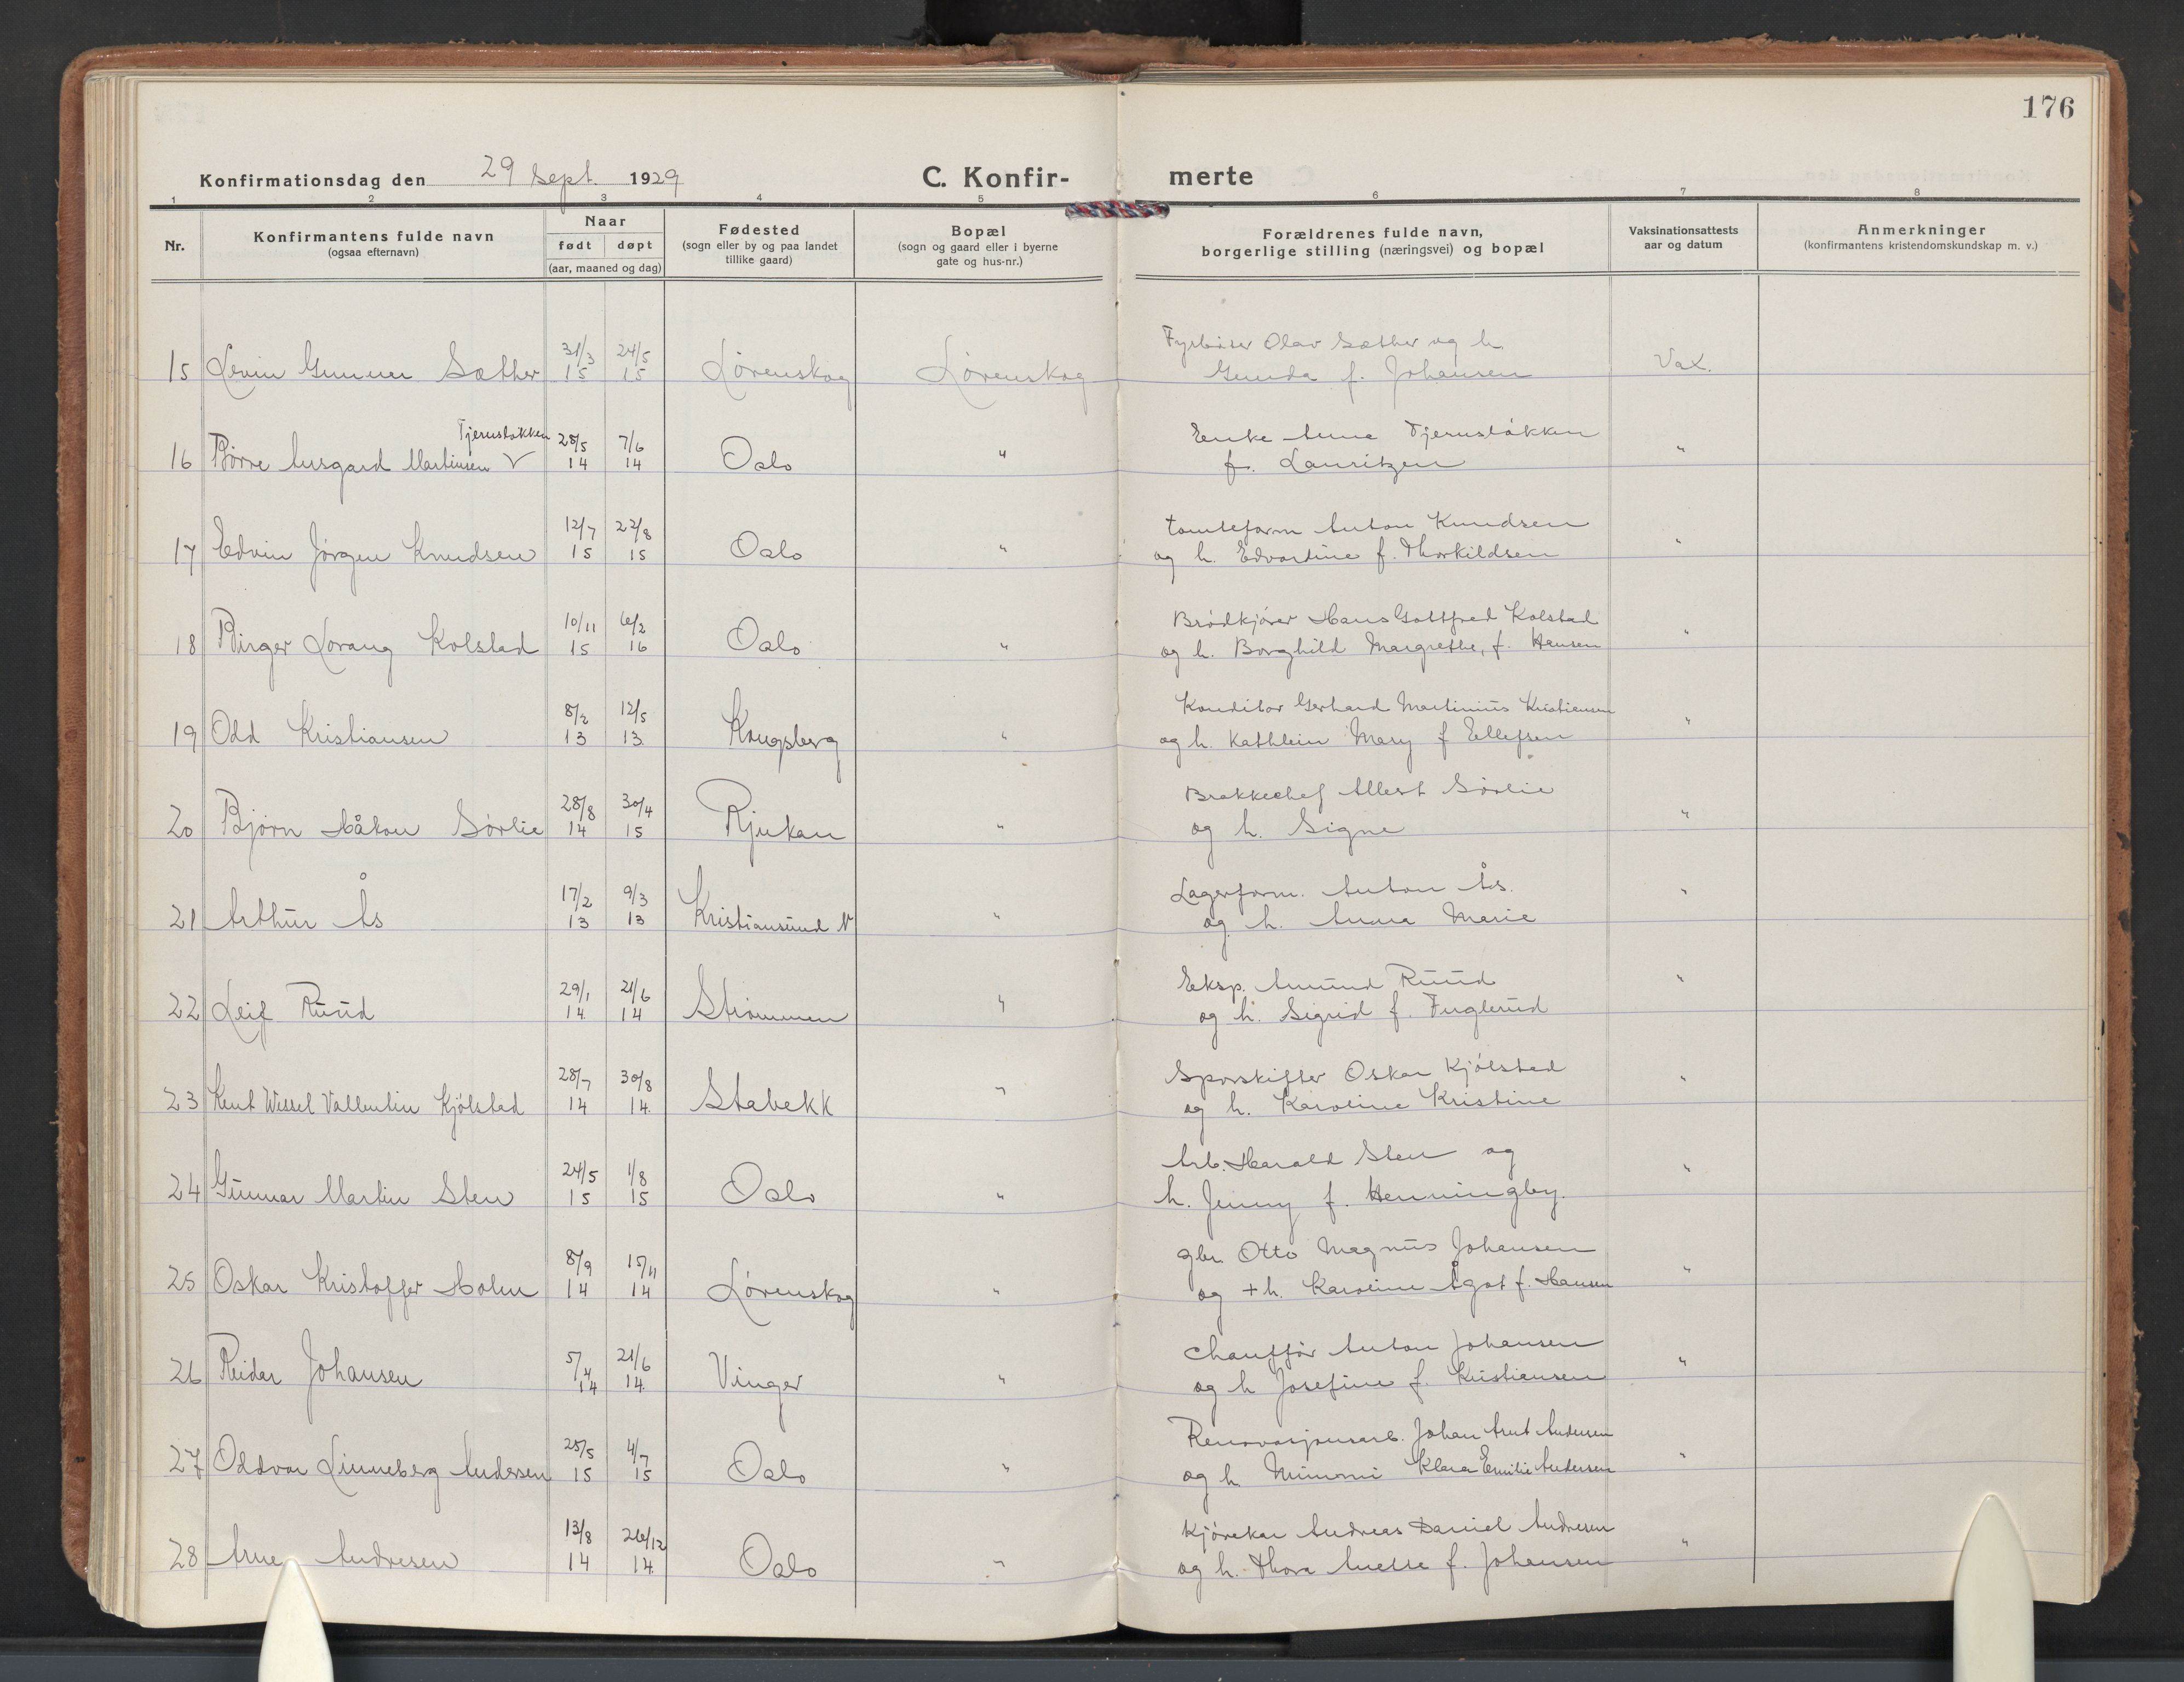 176
Konfirmationsdag den 29 Sept. 1929 C. Konfir- merte
1 2 3 4 5 6 7 8
Nr. Konfirmantens fulde navn (ogsaa efternavn) Naar født døpt (aar, maaned og dag) Fødested (sogn eller by og paa landet tillike gaard) Bopæl (sogn og gaard eller i byerne gate og hus-nr.) Forældrenes fulde navn, borgerlige stilling (næringsvei) og bopæl Vaksinationsattests aar og datum Anmerkninger (konfirmantens kristendomskundskap m. v.)
31/3 24/5 Fyrbøter Olav Sæther og h.
15 Gunnar Sæther 15 15 Lørenskog Lørenskog Gunda f. Johansen Vax.
Tjernsbakken 28/5 7/6 Enke Anna Tjernsbakken
16 Børre Ausgard Martinsen V 14 14 Oslo " f. Lauritzen "
12/7 22/8 Tomteform Anton Knudsen
17 Edvin Jørgen Knudsen 15 15 Oslo " og h. Edvardine f. Thorkildsen "
10/11 6/2 Brødkjører Hans Gottfred Kolstad
18 Birger Lorang Kolstad 15 16 Oslo " og h. Borghild Margrethe, f. Hansen "
8/2 12/5 Konditor Gerhard Martinius Kristiansen
19 Odd Kristiansen 13 13. Kongsberg " og h. Kathlein Mary f Ellefsen "
28/8 30/4 Brakkechef Albert Sørlie
20 Bjørn Håkon Sørlie 14 15 Rjukan " og h. Signe "
17/2 9/3 Lagerform. Anton Ås.
21 Arthur Ås 13 13 Kristiansund N " og h. Anna Marie "
29/1 21/6 Eksp. Amund Ruud
22 Leif Ruud 14 14 Strømmen " og h. Sigrid f. Fuglerud "
28/7 30/8 Sporskifter Oskar Kjølstad
23 Kent Wessel Vallentin Kjølstad 14 14. Stabekk " og h. Karoline Kristine "
24/5 1/8 Arb. Harald Sten og
24 Gunnar Martin Sten 15 15 Oslo " h. Jenny f. Henningby. "
8/9 15/11 gbr Otto Magnus Johansen
25 Oskar Kristoffer Holm 14 14 Lørenskog " og + h. Karoline Ågot f. Hansen "
5/4 21/6 Chauffør Anton Johansen
26 Reidar Johansen 14 14. Vinger " og h Josefine f. Kristiansen "
25/5 4/7 Renovasjonsarb. Johan Arnt Andersen
27 Oddvar Linneberg Andersen 15 15 Oslo " og h Mimmi Klara Emilie Andersen "
13/8 26/12 Kjørekar Andreas Daniel Andresen
28 Arne Andresen 14 14. Oslo " og h. Thora Anette f. Johansen "